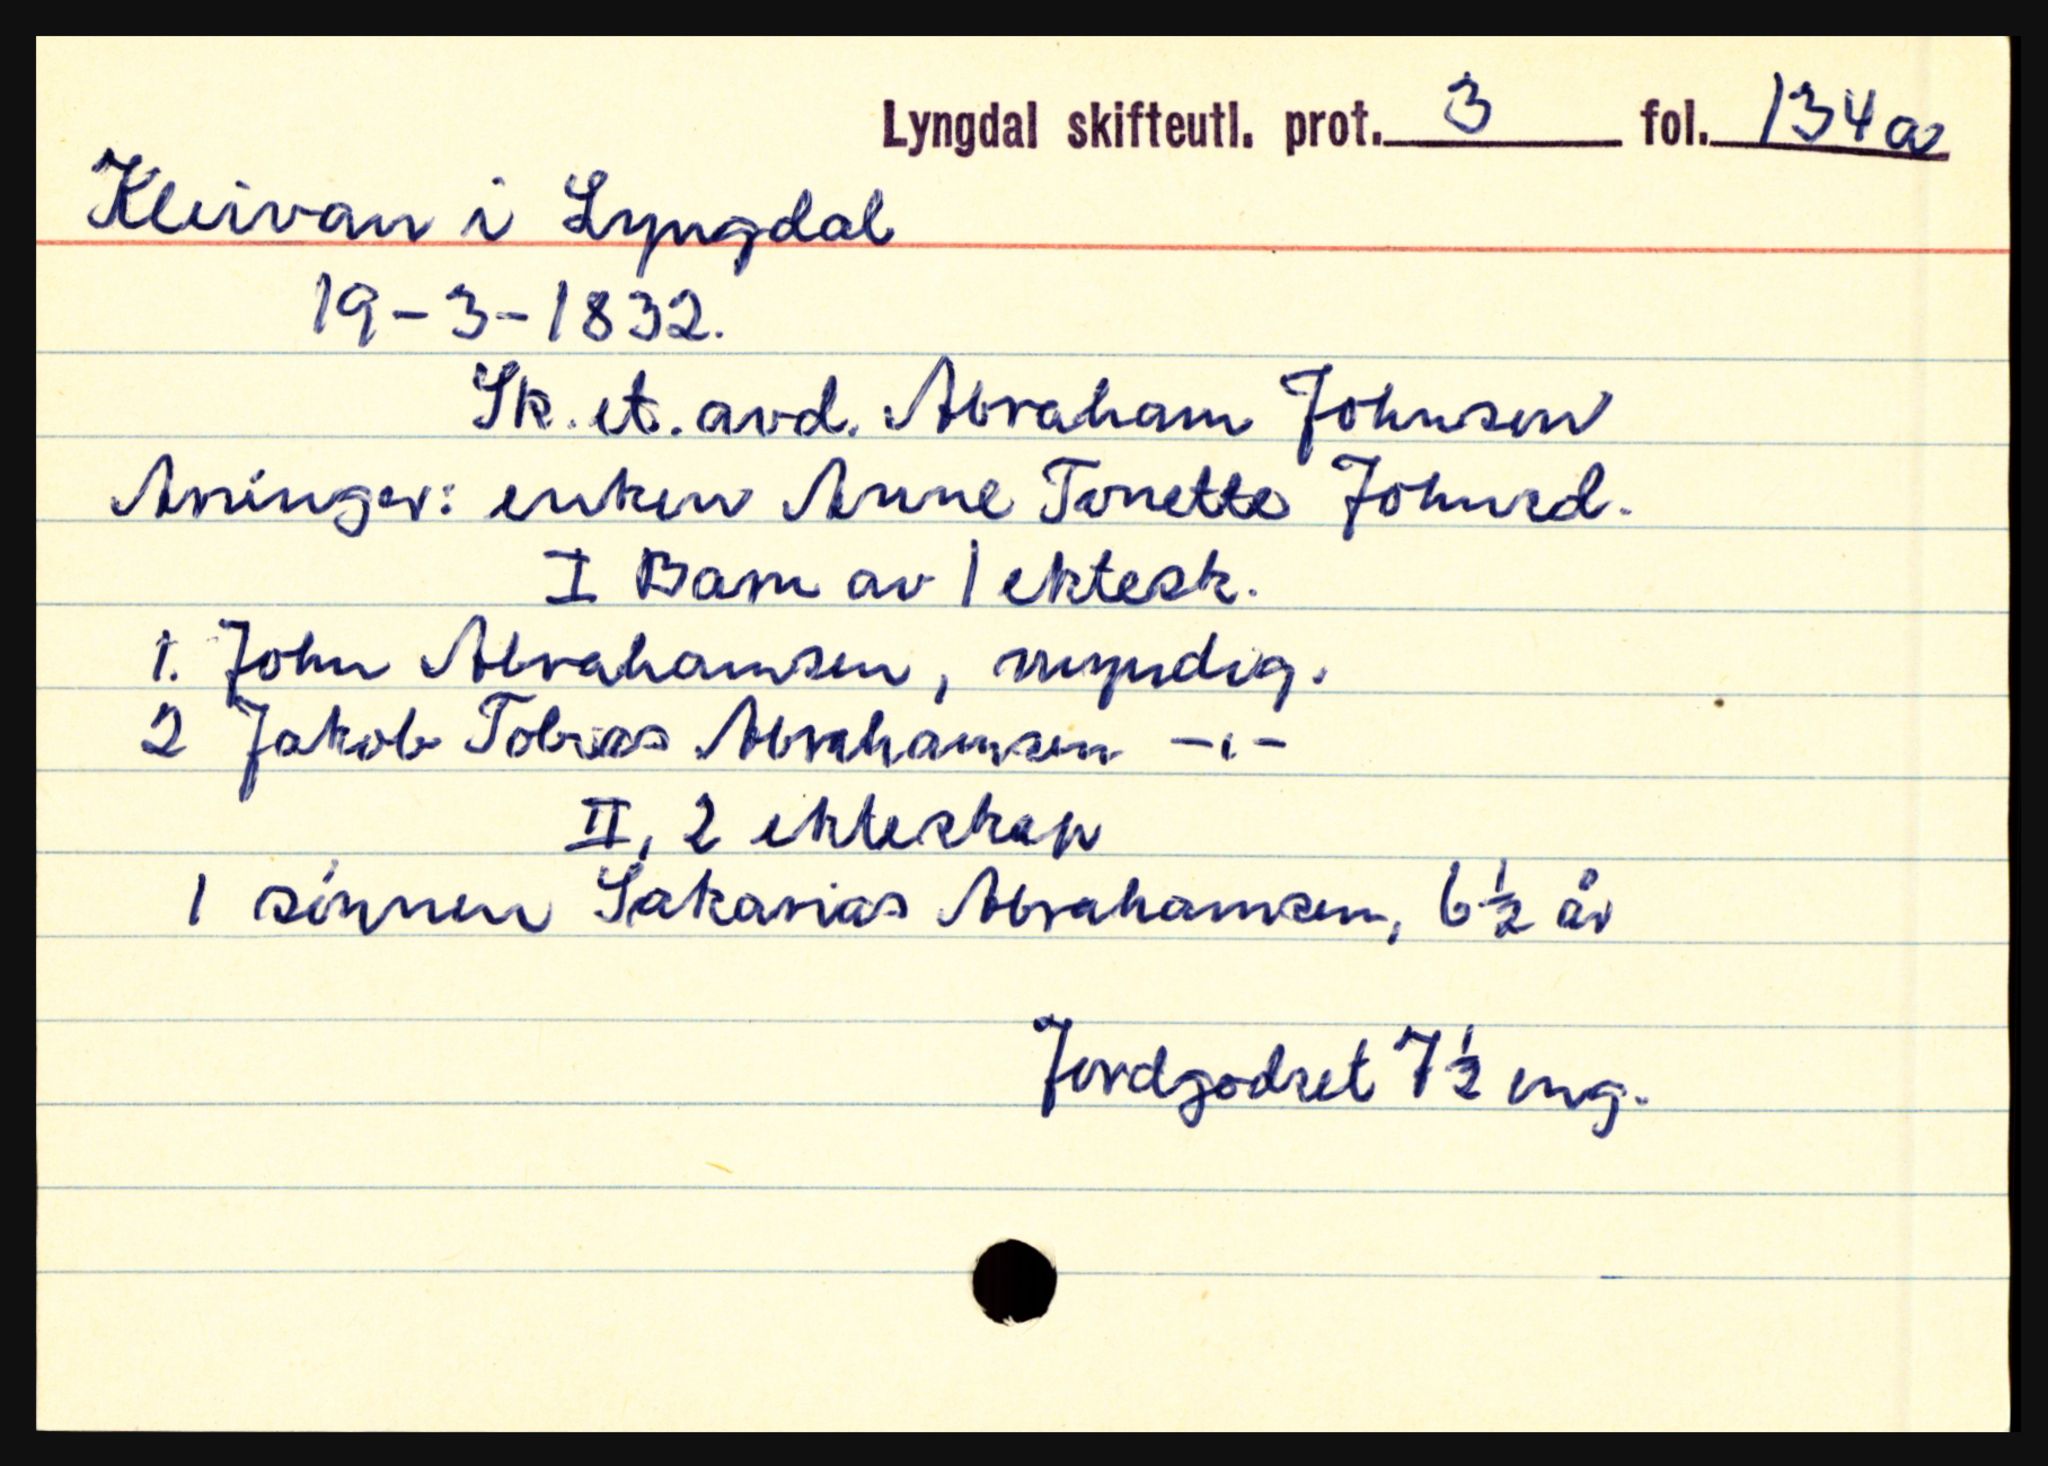 Lyngdal skifteutl. prot. 3 fol. 134a
Kleivan i Lyngdal
19-3-1832.
Sk. et. avd. Abraham Johnsen
Arvinger: enken Anne Tonette Johnsd.
I Barn av 1 ektesk.
1. John Abrahamsen, myndig.
2 Jakob Tobias Abrahamsen -"-
II, 2 ekteskap
1 sönnen Sakarias Abrahamsen, 6 1/2 år
Jordgodset 7 1/2 eng.